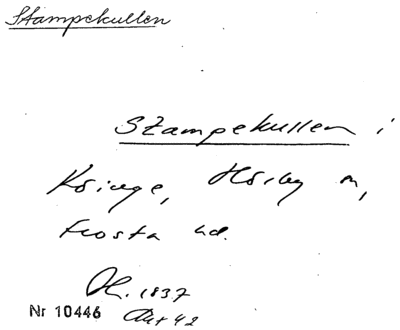 Stampekullen
Stampekullen i
Kringe, Hörby sn,
Frosta hd.
1837
Nr 10446 Akt 42